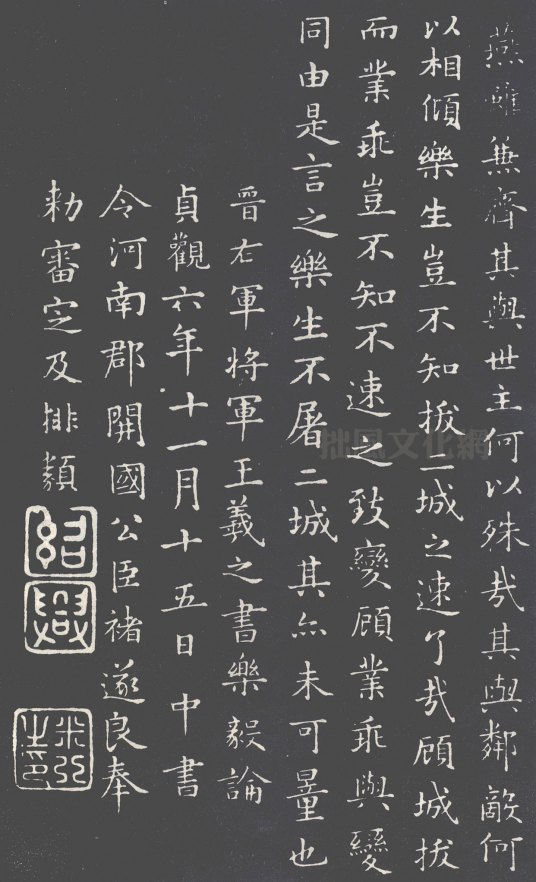 燕雖兼齊其與世主何以殊哉其與鄰敵何
以相傾樂生豈不知拔二城之速了哉顧城拔
而業乖豈不知不速之致變顧業乖與變
同由是言之樂生不屠二城其亦未可量也
晉右軍將軍王羲之書樂毅論
貞觀六年十一月十五日中書
令河南郡開國公臣褚遂良奉
勅審定及排類
紹興
米芾之印
拙風文化網